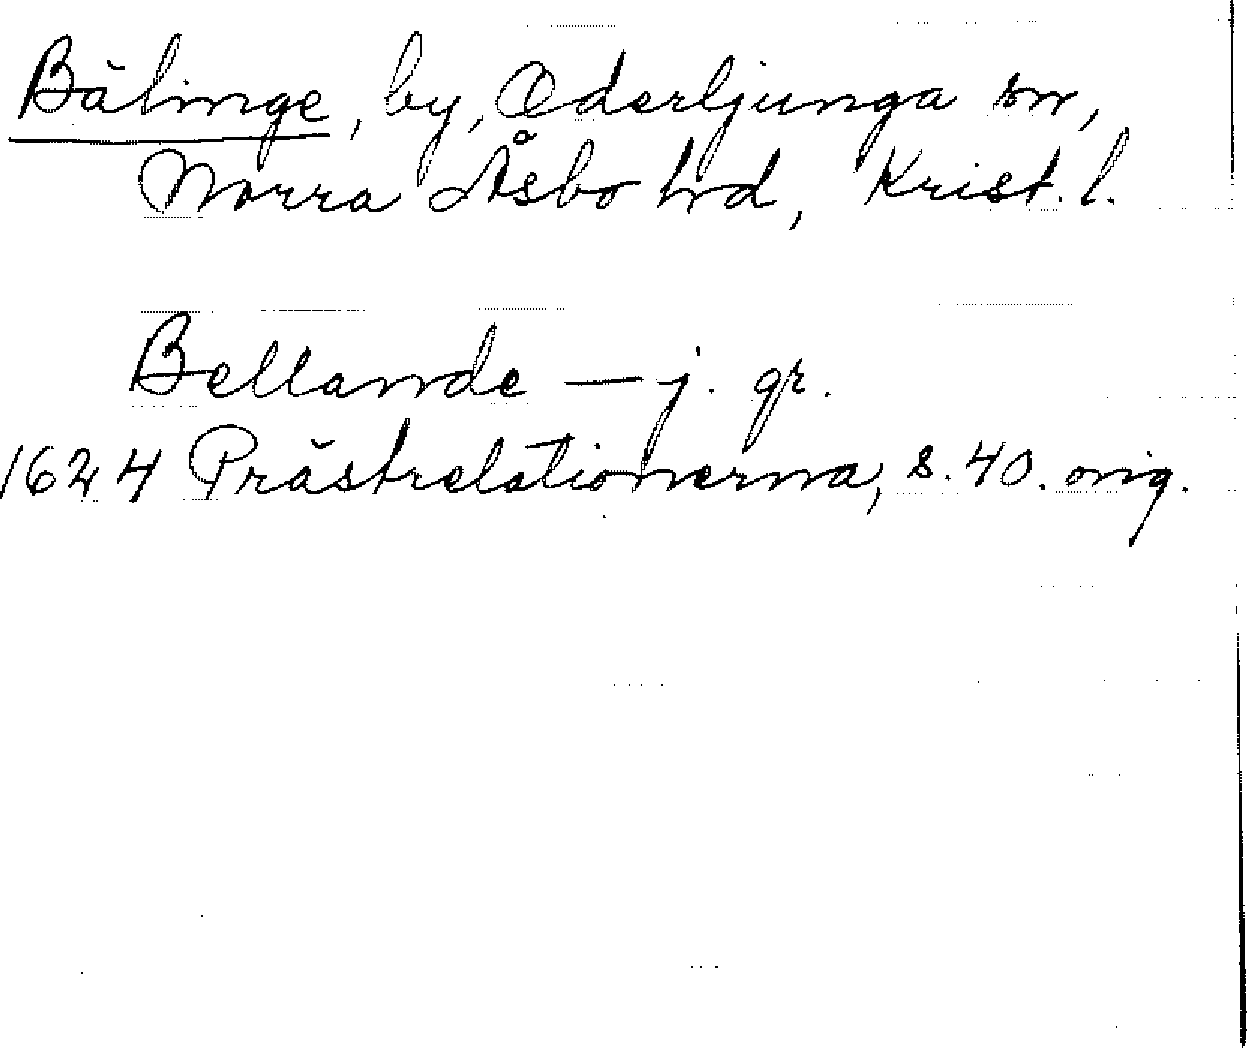 Bälinge, by, Oderljunga sn,
Norra Åsbo hd, Krist. l.
Bellande — j. gr.
1624 Prästrelationerna, s. 40. orig.